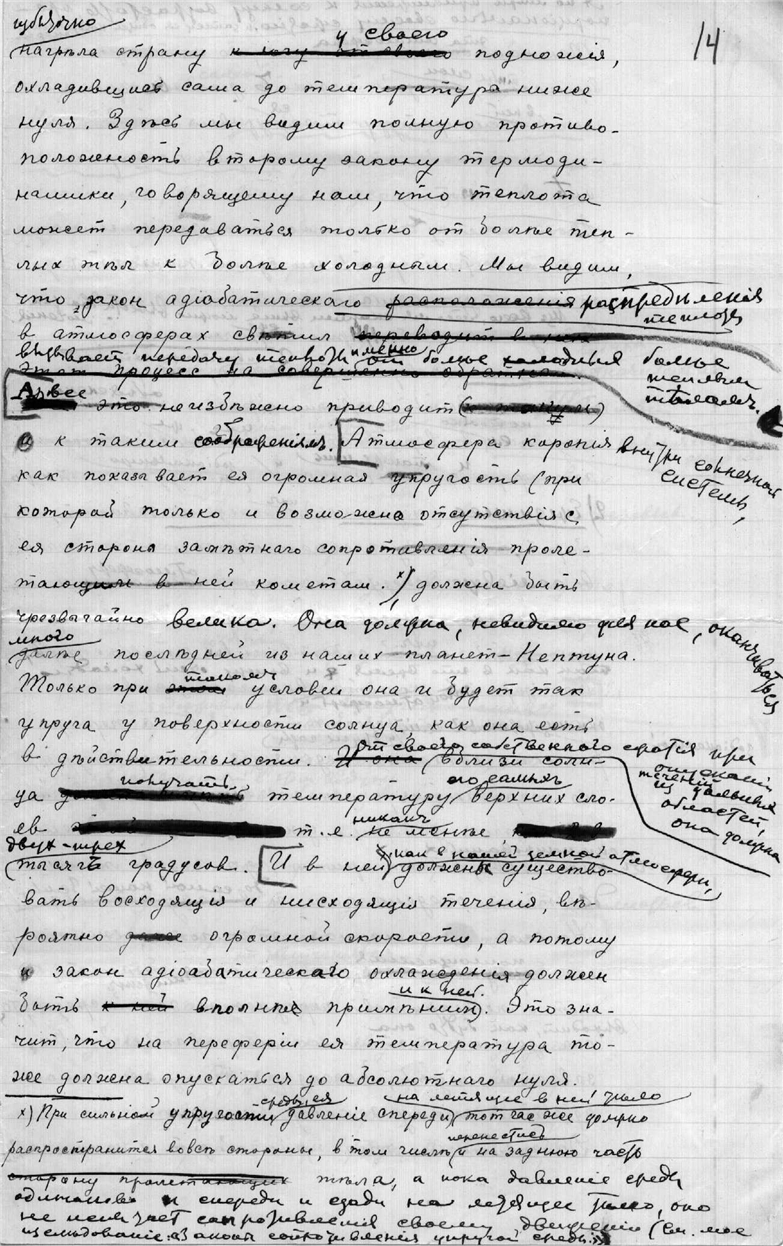 избыточно
14
нагрѣла страну к югу от своего у своего подножія,
охладившись сама до температуры ниже
нуля. Здѣсь мы видим полную противо-
положность второму закону термоди-
намики, говорящему нам, что теплота
может передаваться только от болѣе теп-
лых тѣл к болѣе холодным. Мы видим,
что закон адіабатическаго расположенія распредѣленія
теплоты
в атмосферах свѣтил переводит в них
вызывает передачу теплоты именно от болѣе холодных болѣе
этот процесс на совершенно обратный.
теплым
тѣлам.
А все это неизбѣжно приводит
и к таким соображеніям. Атмосфера короnія внутри солнечной
системы,
как показывает ея огромная упругость (при
которой только и возможно отсутствія с
ея стороны замѣтнаго сопротивленія проле-
тающим в ней кометам. х) должна быть
чрезвычайно велика. Она должна, невидимо для нас, оканчиваться
много
далѣе послѣдней из наших планет-Нептуна.
Только при таком условіи она и будет так
упруга у поверхности солнца как она есть
в дѣйствительности. И она от своего собственного сжатія при
опусканіи
теченій
из дальних
областей,
она должна
вблизи солн-
ца получать температуру его самых верхних сло-
ев т.е. никак не менѣе
двух-трех
тысяч градусов. И в ней, как в нашей земной атмосферѣ,
должны существо-
вать восходящія и нисходящія теченія, вѣ-
роятно даже огромной скорости, а потому
и закон адіоабатическаго охлажденія должен
быть к ней вполнѣ примѣним и к ней. Это зна-
чит, что на переферіи ея температура то-
же должна опускаться до абсолютнаго нуля.
х) При сильной упругости среды ея давленіе спереди на летящее в ней тѣло тотчас же должно
распространится во всѣ стороны, в том числѣ перенестись и на заднюю часть
сторону пролетающих тѣла, а пока давленіе среды
одинаково и спереди и сзади на летящее тѣло, оно
не испытает сопротивленія своему движенію (см. мое
изслѣдованіе: Законы сопротивленія упругой среды).